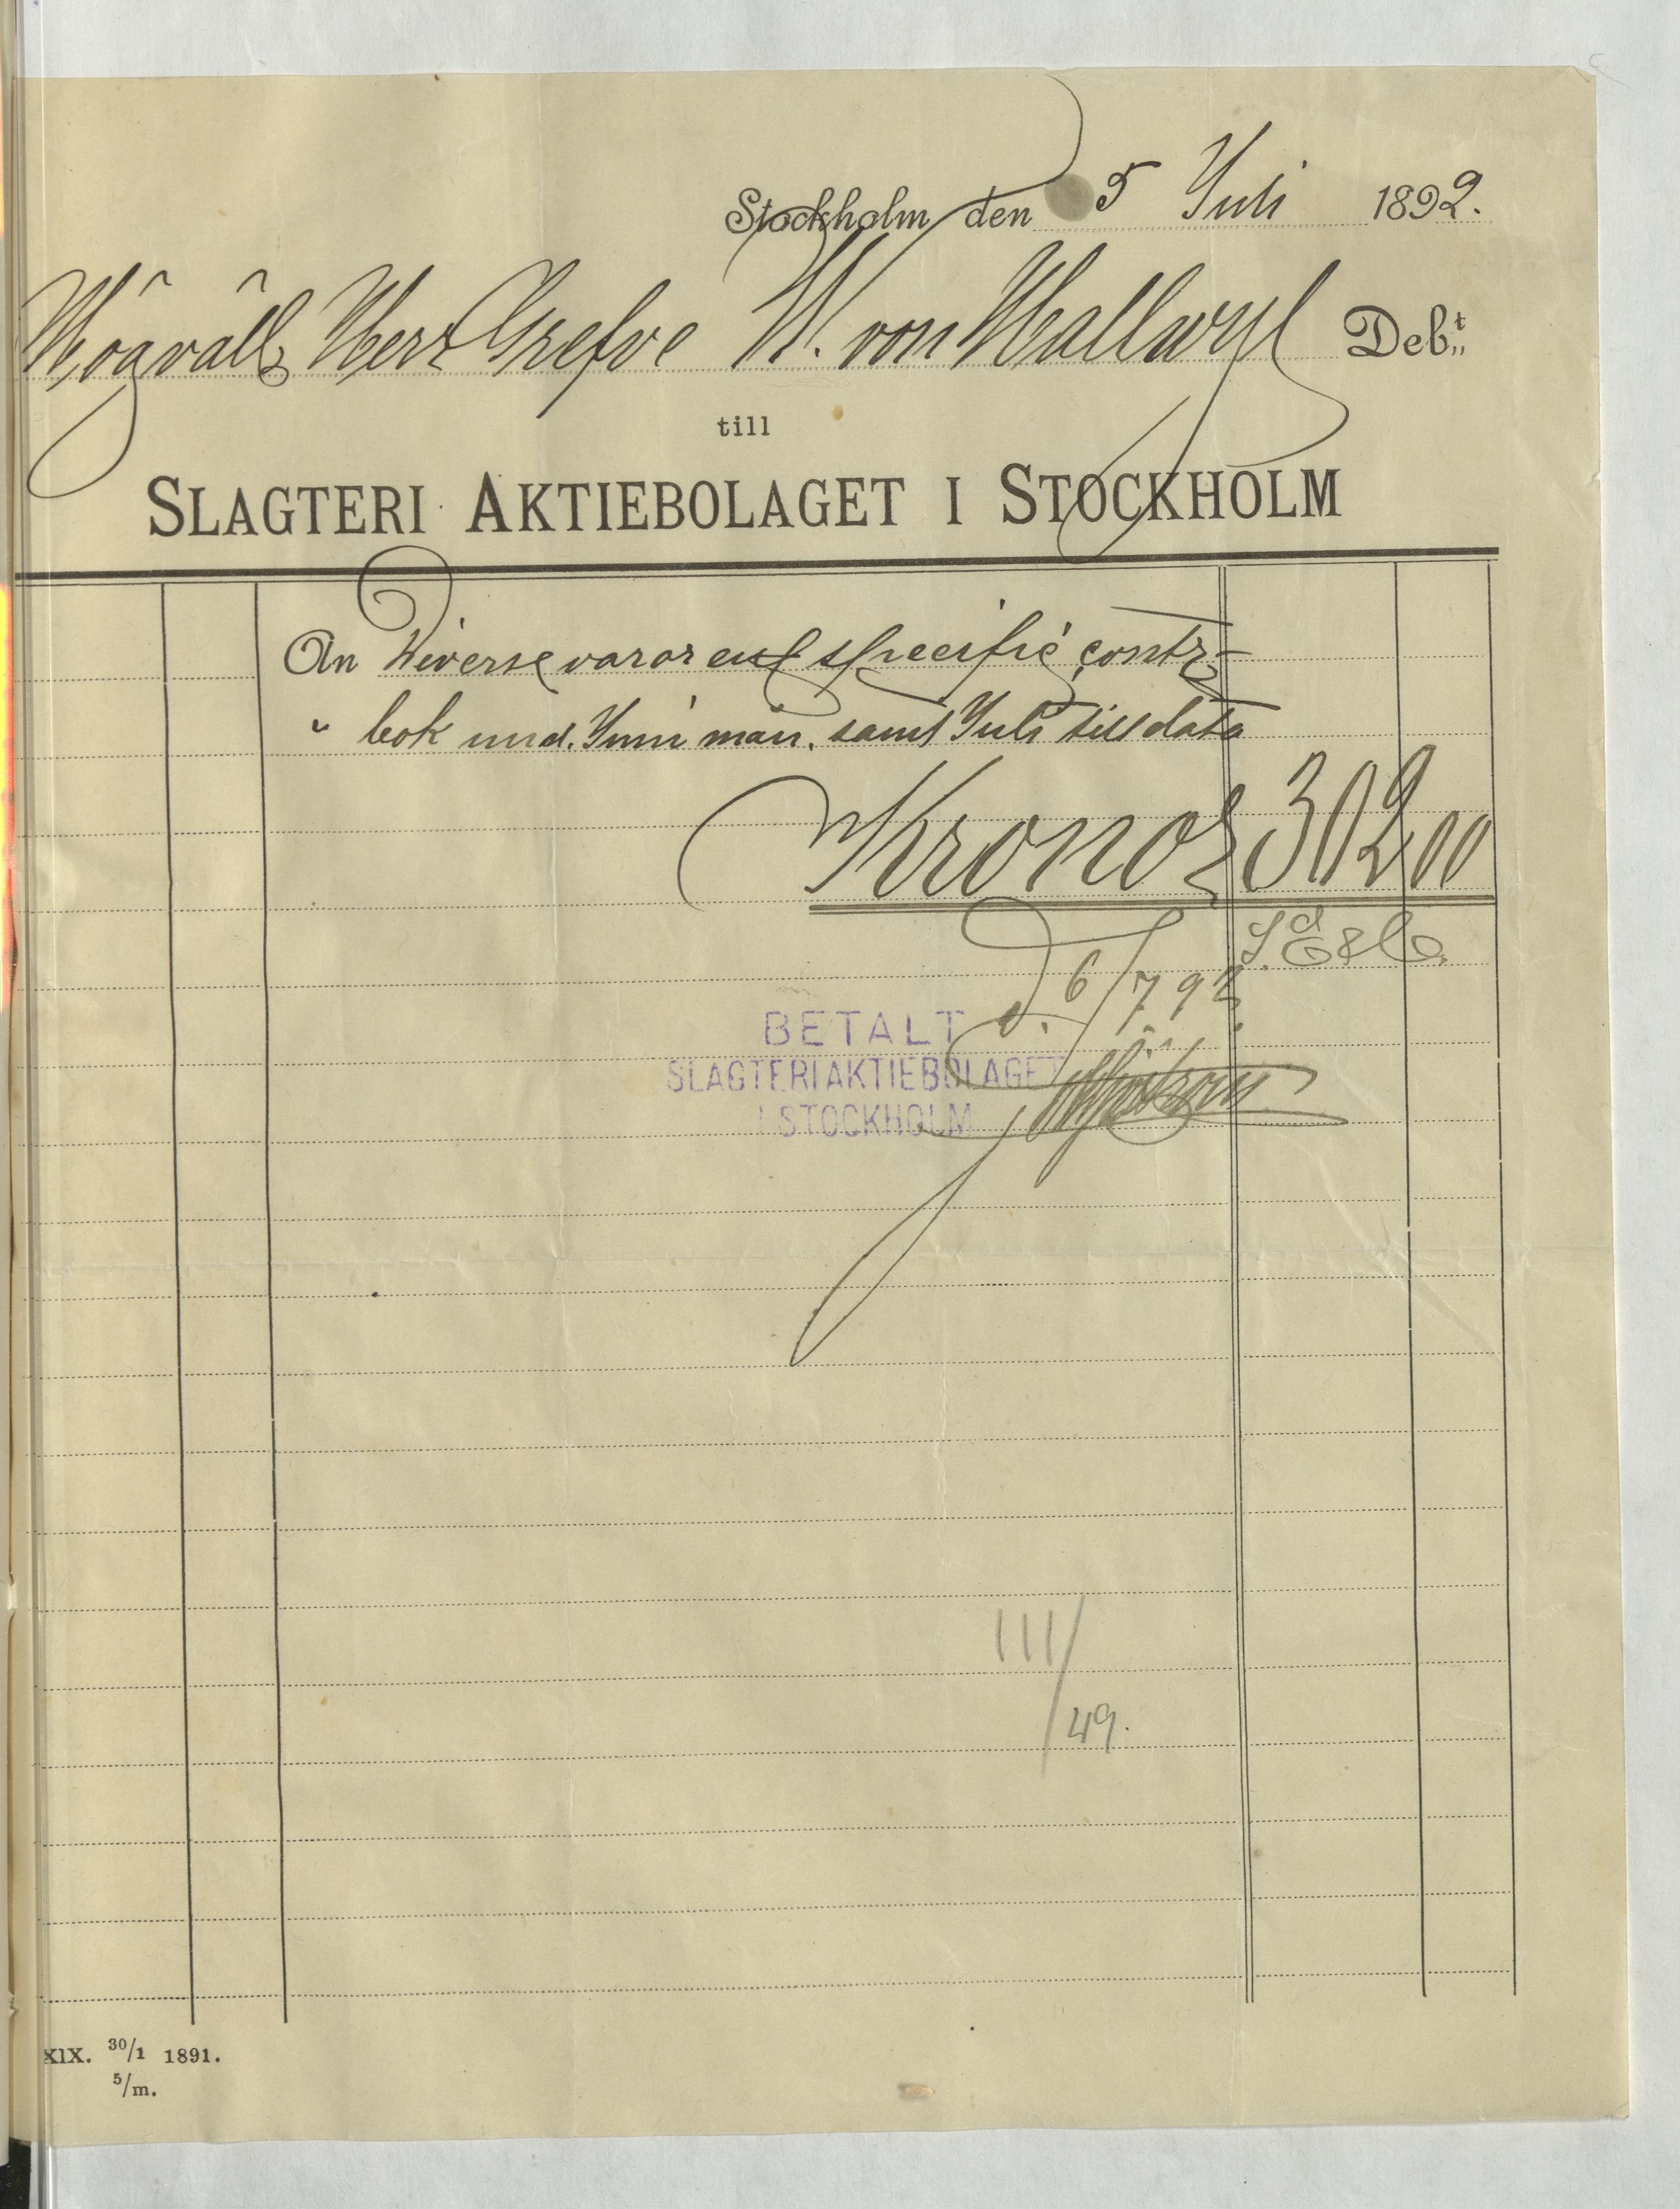 Stockholm den 5 Juli 1892.
Högväll Herr Grefve W. von Hallwyl Deb:t
till
SLAGTERI AKTIEBOLAGET I STOCKHOLM
An Diverse varor enl specific contr-
" bok und. Juni mån. samt Juli till dato
Kronor 302 00
S.E&O.
d. 6/7 92.
BETALT
SLAGTERIAKTIEBOLAGET
I STOCKHOLM
111/
49.
XIX. 30/1 1891.
5/m.